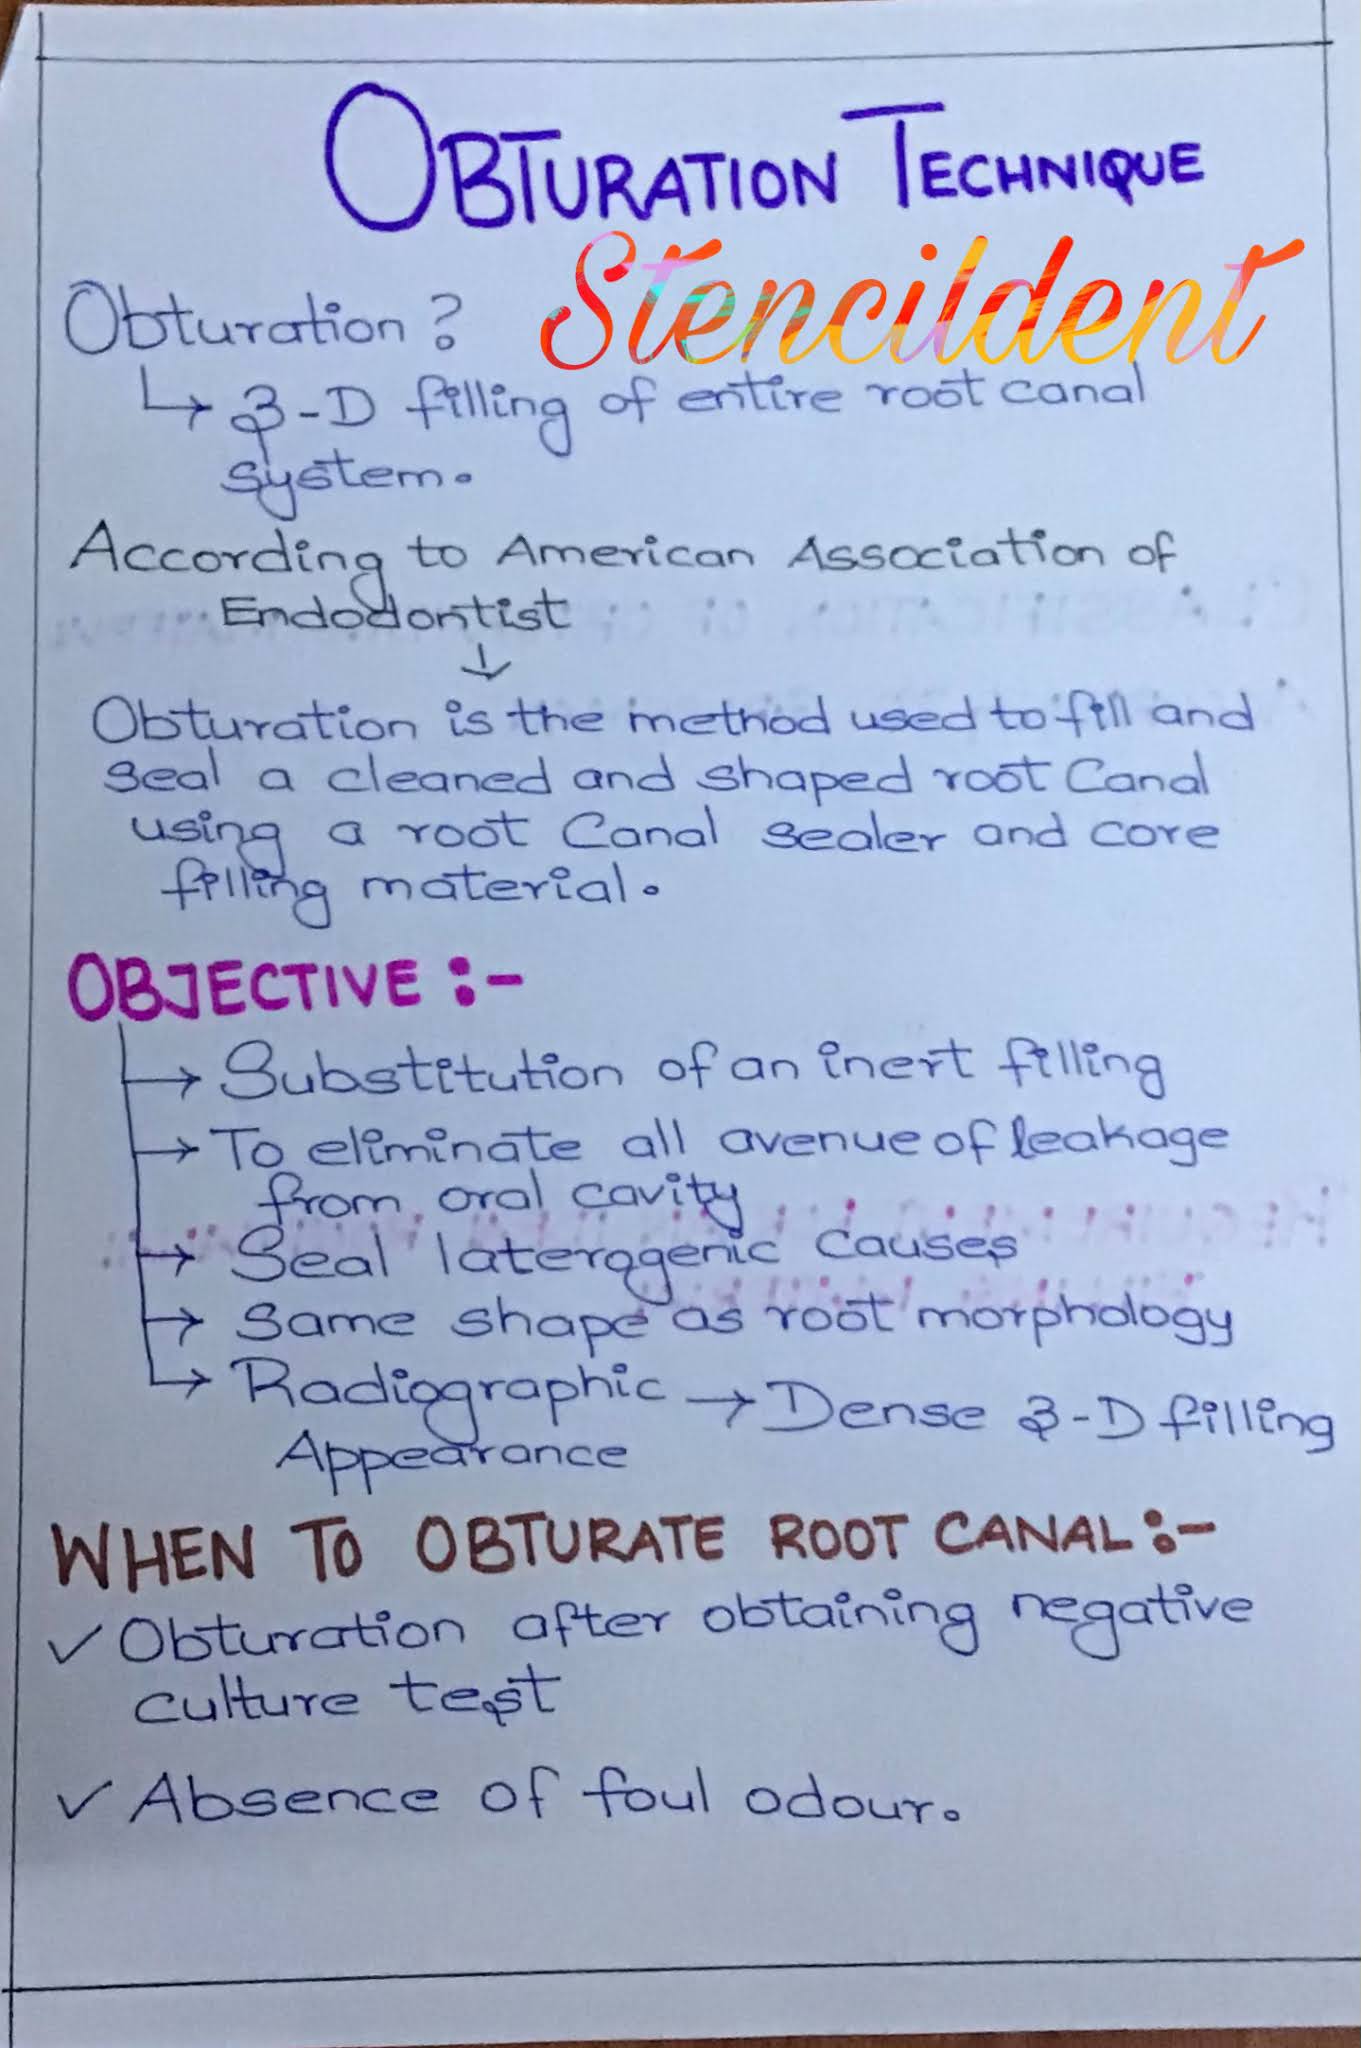 OBTURATION TECHNIQUE
Stencildent
Obturation ?
↳ 3-D filling of entire root canal
system.
According to American Association of
Endodontist
↓
Obturation is the method used to fill and
seal a cleaned and shaped root Canal
using a root Canal sealer and core
filling material.
OBJECTIVE :-
→ Substitution of an inert filling
→ To eliminate all avenue of leakage
from oral cavity
→ Seal laterogenic causes
→ Same shape as root morphology
→ Radiographic → Dense 3-D filling
Appearance
WHEN TO OBTURATE ROOT CANAL :-
✓ Obturation after obtaining negative
culture test
✓ Absence of foul odour.